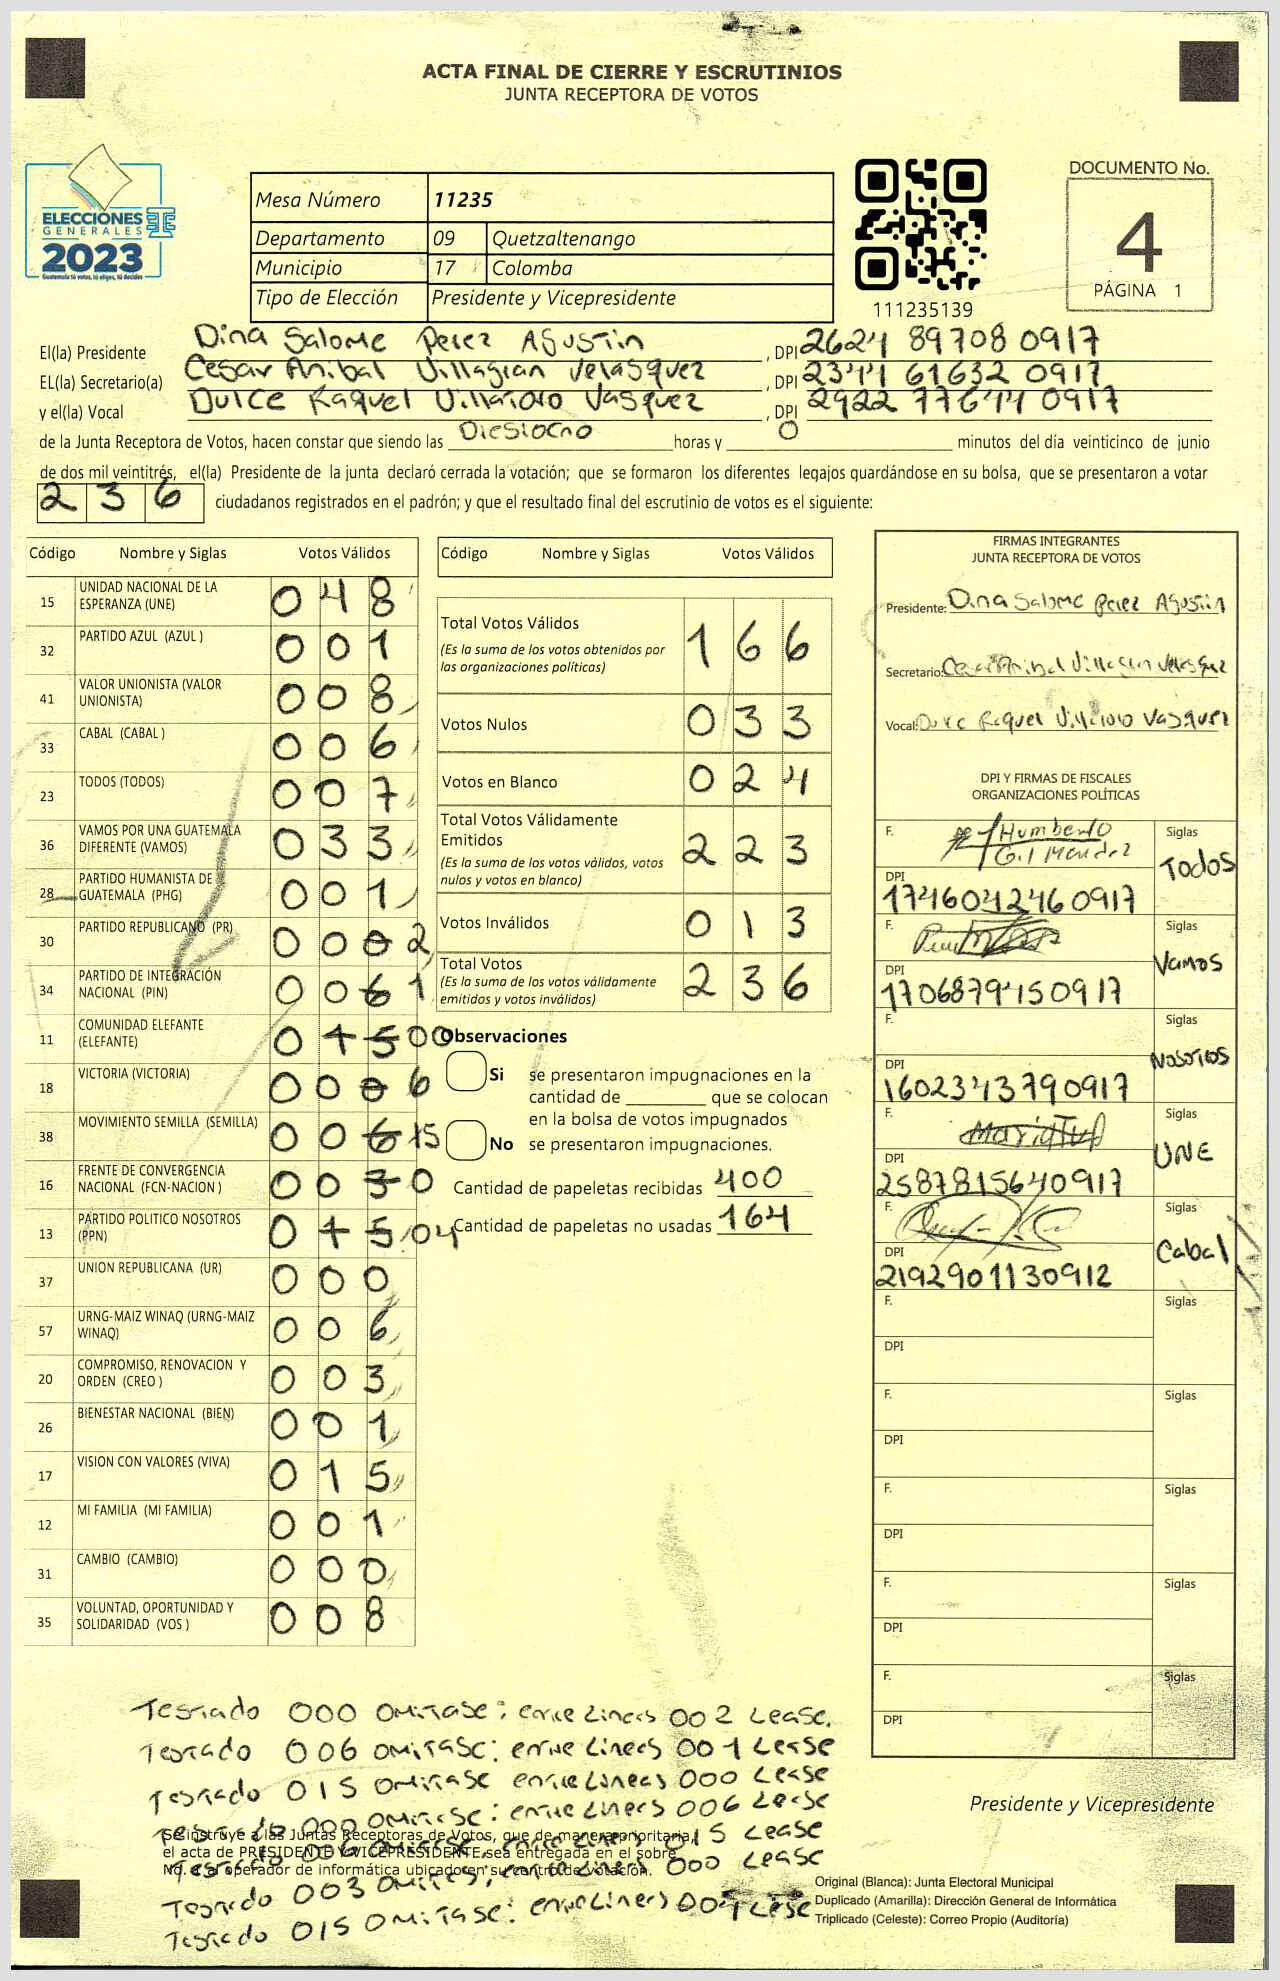 ACTA FINAL DE CIERRE Y ESCRUTINIOS
JUNTA RECEPTORA DE VOTOS
ELECCIONES
GENERALES
2023
Guatemala tú votas, tú eliges, tú decides
Mesa Número 11235
Departamento 09 Quetzaltenango
Municipio 17 Colomba
Tipo de Elección Presidente y Vicepresidente
111235139
DOCUMENTO No.
4
PÁGINA 1
El(la) Presidente Dina Salome Perez Agustin , DPI 2624 89708 0917
EL(la) Secretario(a) Cesar Anibal Villagran Velasquez , DPI 2344 61632 0917
y el(la) Vocal Dulce Raquel Villatoro Vasquez , DPI 2922 77644 0917
de la Junta Receptora de Votos, hacen constar que siendo las Diesiocho horas y 0 minutos del día veinticinco de junio
de dos mil veintitrés, el(la) Presidente de la junta declaró cerrada la votación; que se formaron los diferentes legajos guardándose en su bolsa, que se presentaron a votar
2 3 6 ciudadanos registrados en el padrón; y que el resultado final del escrutinio de votos es el siguiente:
Código Nombre y Siglas Votos Válidos
15 UNIDAD NACIONAL DE LA ESPERANZA (UNE) 0 4 8
32 PARTIDO AZUL (AZUL ) 0 0 1
41 VALOR UNIONISTA (VALOR UNIONISTA) 0 0 8
33 CABAL (CABAL ) 0 0 6
23 TODOS (TODOS) 0 0 7
36 VAMOS POR UNA GUATEMALA DIFERENTE (VAMOS) 0 3 3
28 PARTIDO HUMANISTA DE GUATEMALA (PHG) 0 0 1
30 PARTIDO REPUBLICANO (PR) 0 0 0 2
34 PARTIDO DE INTEGRACIÓN NACIONAL (PIN) 0 0 6 1
11 COMUNIDAD ELEFANTE (ELEFANTE) 0 1 5 00
18 VICTORIA (VICTORIA) 0 0 0 6
38 MOVIMIENTO SEMILLA (SEMILLA) 0 0 6 15
16 FRENTE DE CONVERGENCIA NACIONAL (FCN-NACION ) 0 0 3 0
13 PARTIDO POLITICO NOSOTROS (PPN) 0 1 5 04
37 UNION REPUBLICANA (UR) 0 0 0
57 URNG-MAIZ WINAQ (URNG-MAIZ WINAQ) 0 0 6
20 COMPROMISO, RENOVACION Y ORDEN (CREO ) 0 0 3
26 BIENESTAR NACIONAL (BIEN) 0 0 1
17 VISION CON VALORES (VIVA) 0 1 5
12 MI FAMILIA (MI FAMILIA) 0 0 1
31 CAMBIO (CAMBIO) 0 0 0
35 VOLUNTAD, OPORTUNIDAD Y SOLIDARIDAD (VOS ) 0 0 8
Código Nombre y Siglas Votos Válidos
Total Votos Válidos 1 6 6
(Es la suma de los votos obtenidos por
las organizaciones políticas)
Votos Nulos 0 3 3
Votos en Blanco 0 2 4
Total Votos Válidamente
Emitidos 2 2 3
(Es la suma de los votos válidos, votos
nulos y votos en blanco)
Votos Inválidos 0 1 3
Total Votos 2 3 6
(Es la suma de los votos válidamente
emitidos y votos inválidos)
Observaciones
Si se presentaron impugnaciones en la
cantidad de ________ que se colocan
en la bolsa de votos impugnados
No se presentaron impugnaciones.
Cantidad de papeletas recibidas 400
Cantidad de papeletas no usadas 164
FIRMAS INTEGRANTES
JUNTA RECEPTORA DE VOTOS
Presidente: Dina Salome Perez Agustin
Secretario: Cesar Anibal Villagran Velasquez
Vocal: Dulce Raquel Villatoro Vasquez
DPI Y FIRMAS DE FISCALES
ORGANIZACIONES POLÍTICAS
F. Humberto Gil Mendez Siglas Todos
DPI 1746042460917
F. Siglas Vamos
DPI 1706879450917
F. Siglas Nosotros
DPI 1602343790917
F. Siglas UNE
DPI 2587815640917
F. Siglas Cabal
DPI 2192901130912
F. Siglas
DPI
F. Siglas
DPI
F. Siglas
DPI
F. Siglas
DPI
F. Siglas
DPI
Testado 000 omitase: entre Lineas 002 Lease.
Testado 006 omitase: entre Lineas 001 Lease
Testado 015 omitase entre Lineas 000 Lease
000 omitase: entre Lineas 006 Lease
015 Lease
Se instruye a las Juntas Receptoras de Votos, que de manera prioritaria,
el acta de PRESIDENTE Y VICEPRESIDENTE sea entregada en el sobre
No. al operador de informática ubicado en su centro de votación.
Testado 003 omitase, entre Lineas 000 Lease
Testado 015 omitase: entre Lineas 004 Lease
Presidente y Vicepresidente
Original (Blanca): Junta Electoral Municipal
Duplicado (Amarilla): Dirección General de Informática
Triplicado (Celeste): Correo Propio (Auditoría)